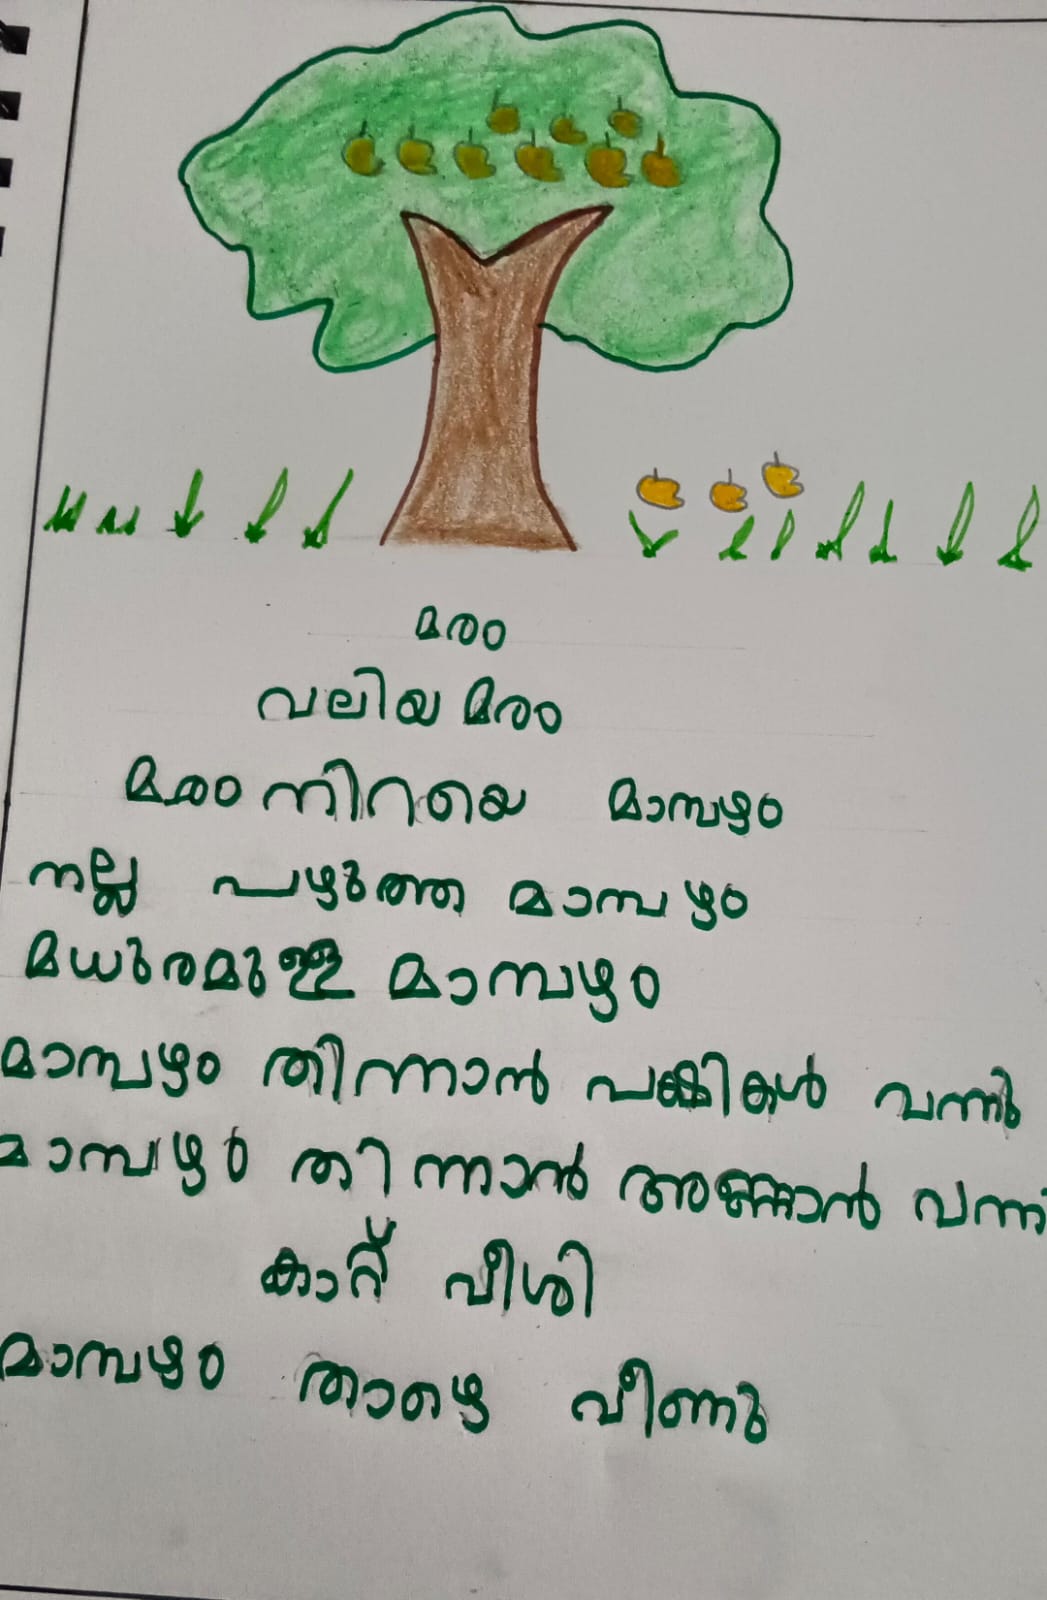 മരം
വലിയ മരം
മരം നിറയെ മാമ്പഴം
നല്ല പഴുത്ത മാമ്പഴം
മധുരമുള്ള മാമ്പഴം
മാമ്പഴം തിന്നാൻ പക്ഷികൾ വന്നു
മാമ്പഴം തിന്നാൻ അണ്ണാൻ വന്നു
കാറ്റ് വീശി
മാമ്പഴം താഴെ വീണു